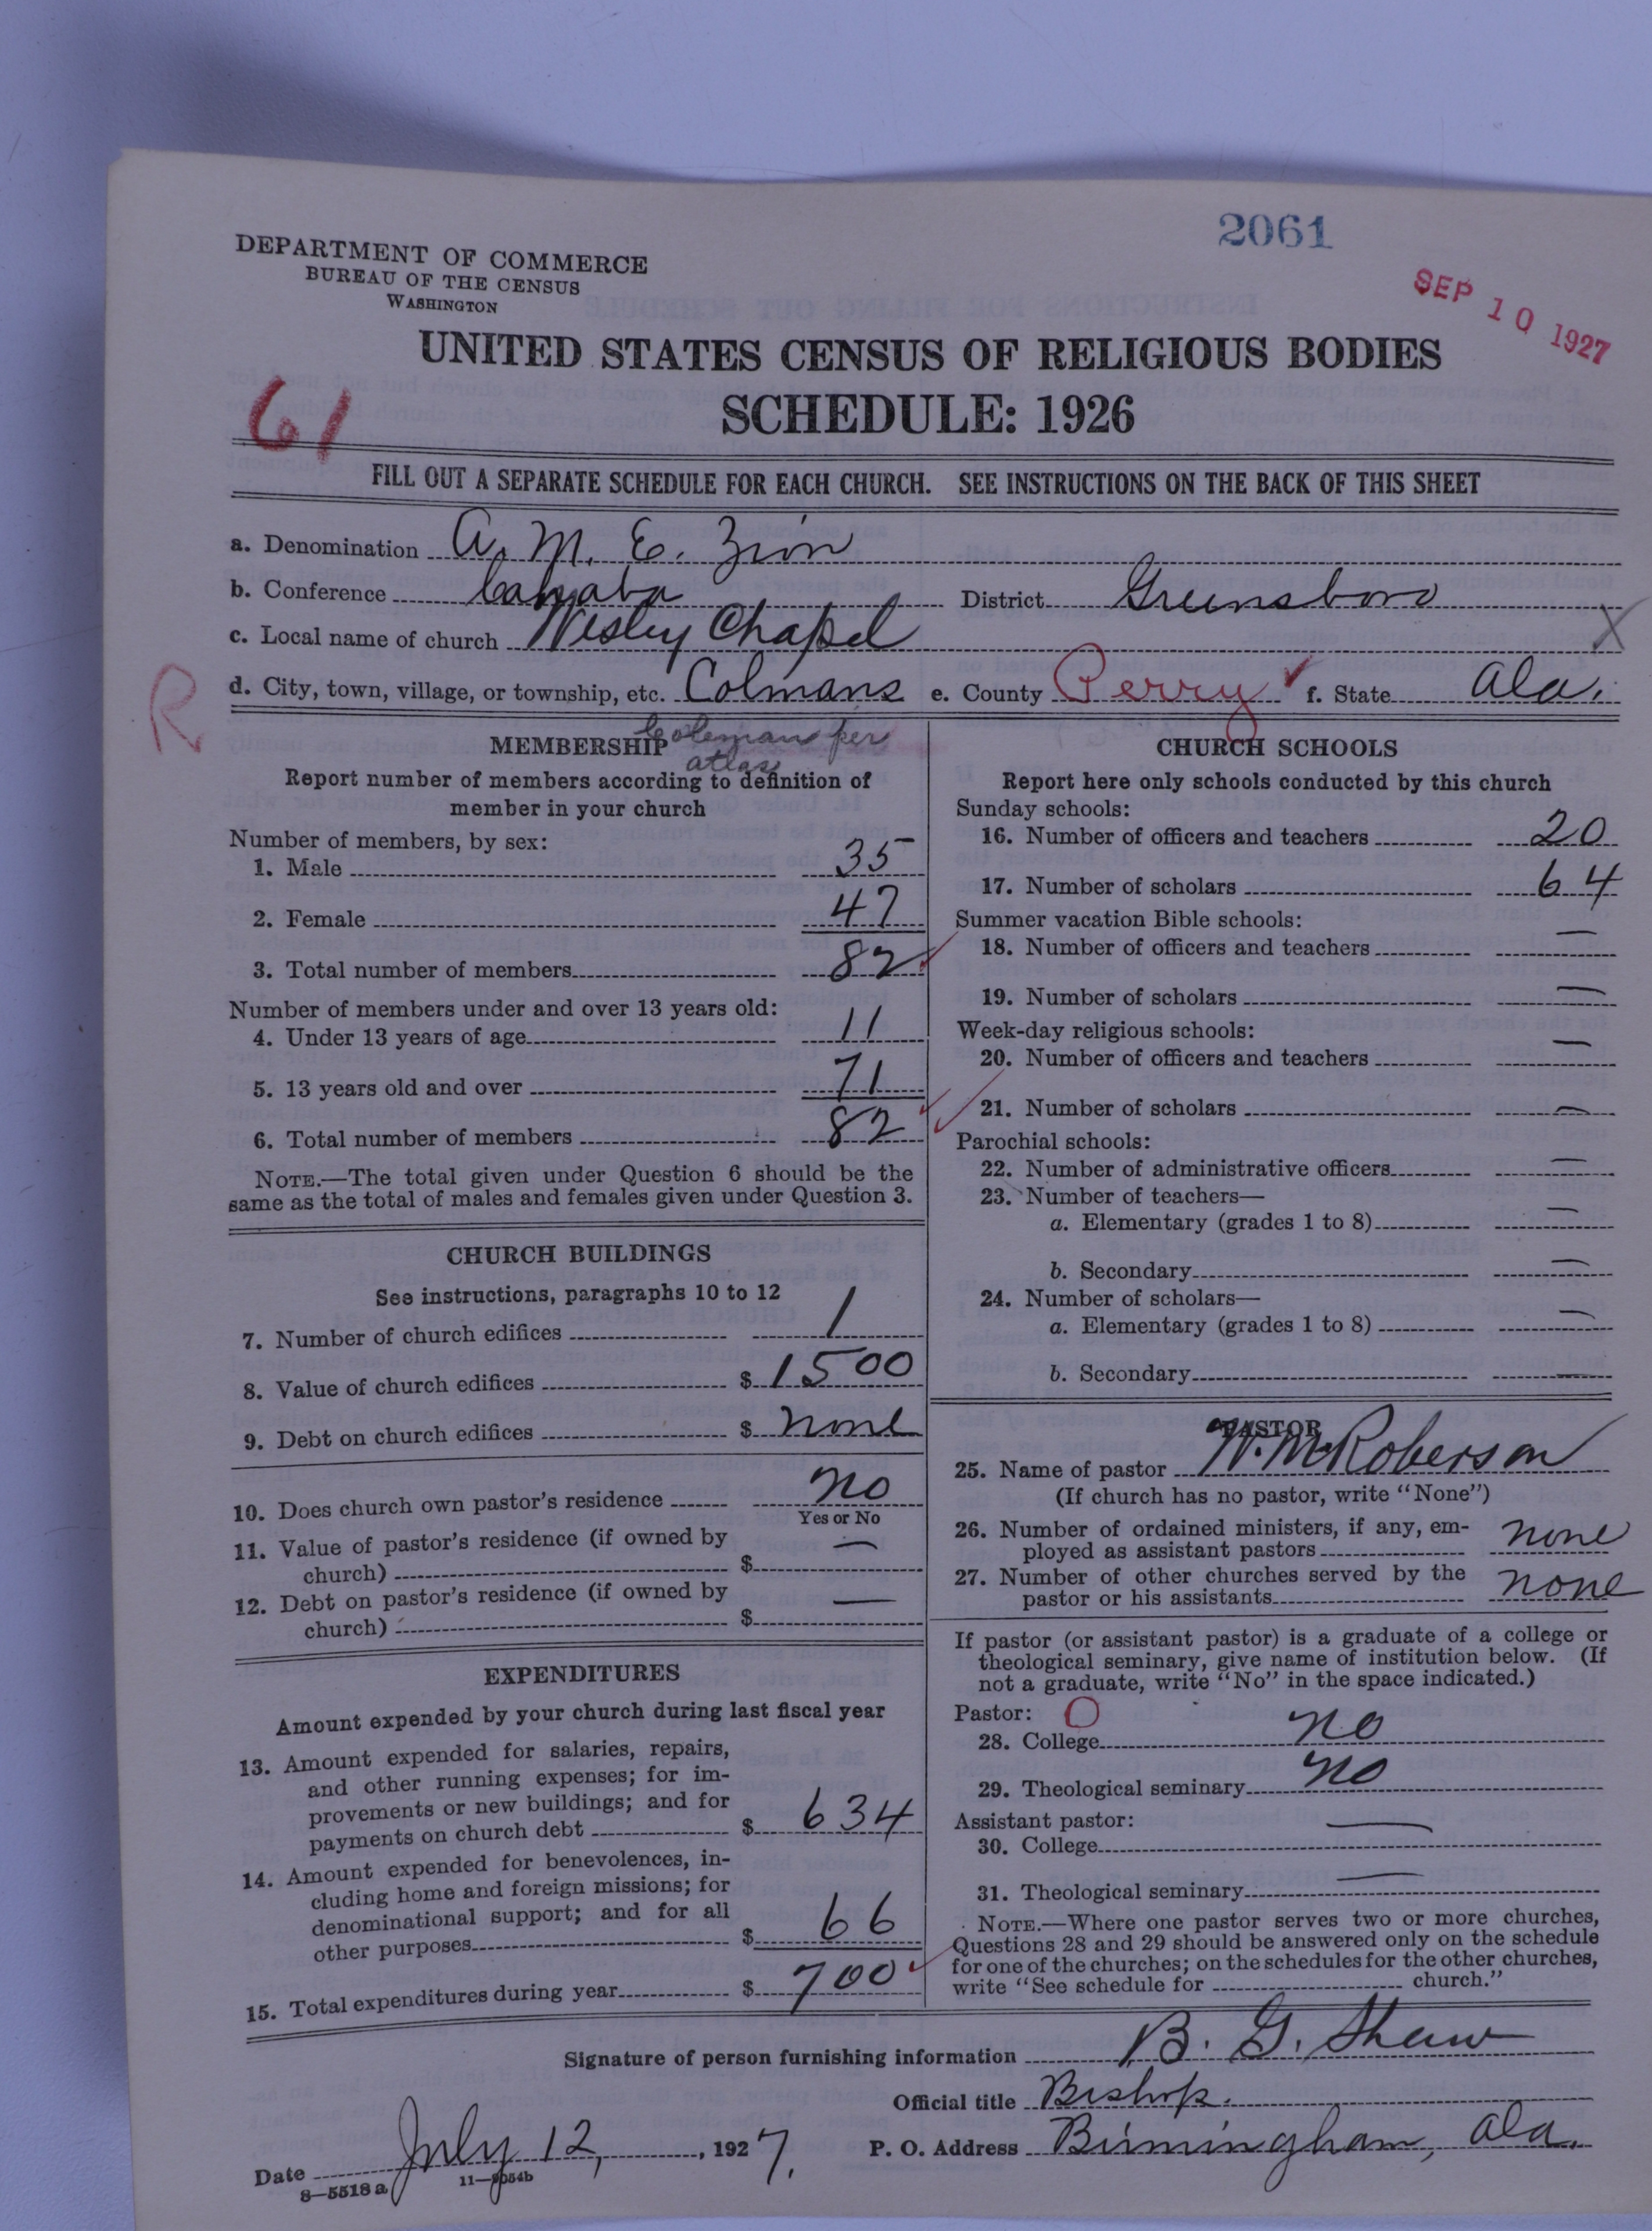 2061
SEP 10 1927
DEPARTMENT OF COMMERCE
BUREAU OF THE CENSUS
WASHINGTON
UNITED STATES CENSUS OF RELIGIOUS BODIES
SCHEDULE: 1926
61
FILL OUT A SEPARATE SCHEDULE FOR EACH CHURCH. SEE INSTRUCTIONS ON THE BACK OF THIS SHEET
a. Denomination A. M. E. Zion
b. Conference Cahaba District Greensboro
c. Local name of church Wesley Chapel X
R
d. City, town, village, or township, etc. Colmans e. County Perry ✓ f. State Ala.
Coleman per
atlas
MEMBERSHIP
Report number of members according to definition of
member in your church
Number of members, by sex:
1. Male 35
2. Female 47
3. Total number of members 82
Number of members under and over 13 years old:
4. Under 13 years of age 11
5. 13 years old and over 71
6. Total number of members 82
NOTE.—The total given under Question 6 should be the
same as the total of males and females given under Question 3.
CHURCH BUILDINGS
See instructions, paragraphs 10 to 12
7. Number of church edifices 1
8. Value of church edifices $ 1500
9. Debt on church edifices $ none
10. Does church own pastor's residence no
Yes or No
11. Value of pastor's residence (if owned by
church) $ —
12. Debt on pastor's residence (if owned by
church) $ —
EXPENDITURES
Amount expended by your church during last fiscal year
13. Amount expended for salaries, repairs,
and other running expenses; for im-
provements or new buildings; and for
payments on church debt $ 634
14. Amount expended for benevolences, in-
cluding home and foreign missions; for
denominational support; and for all
other purposes $ 66
15. Total expenditures during year $ 700
CHURCH SCHOOLS
Report here only schools conducted by this church
Sunday schools:
16. Number of officers and teachers 20
17. Number of scholars 64
Summer vacation Bible schools:
18. Number of officers and teachers —
19. Number of scholars —
Week-day religious schools:
20. Number of officers and teachers —
21. Number of scholars —
Parochial schools:
22. Number of administrative officers —
23. Number of teachers—
a. Elementary (grades 1 to 8) —
b. Secondary —
24. Number of scholars—
a. Elementary (grades 1 to 8) —
b. Secondary —
PASTOR
25. Name of pastor W. M. Roberson
(If church has no pastor, write "None")
26. Number of ordained ministers, if any, em-
ployed as assistant pastors none
27. Number of other churches served by the
pastor or his assistants none
If pastor (or assistant pastor) is a graduate of a college or
theological seminary, give name of institution below. (If
not a graduate, write "No" in the space indicated.)
Pastor: O
28. College no
29. Theological seminary no
Assistant pastor:
30. College —
31. Theological seminary —
NOTE.—Where one pastor serves two or more churches,
Questions 28 and 29 should be answered only on the schedule
for one of the churches; on the schedules for the other churches,
write "See schedule for church."
Signature of person furnishing information B. G. Shaw
Official title Bishop.
Date July 12, 1927. P. O. Address Birmingham, Ala.
8—5518 a 11—9054b